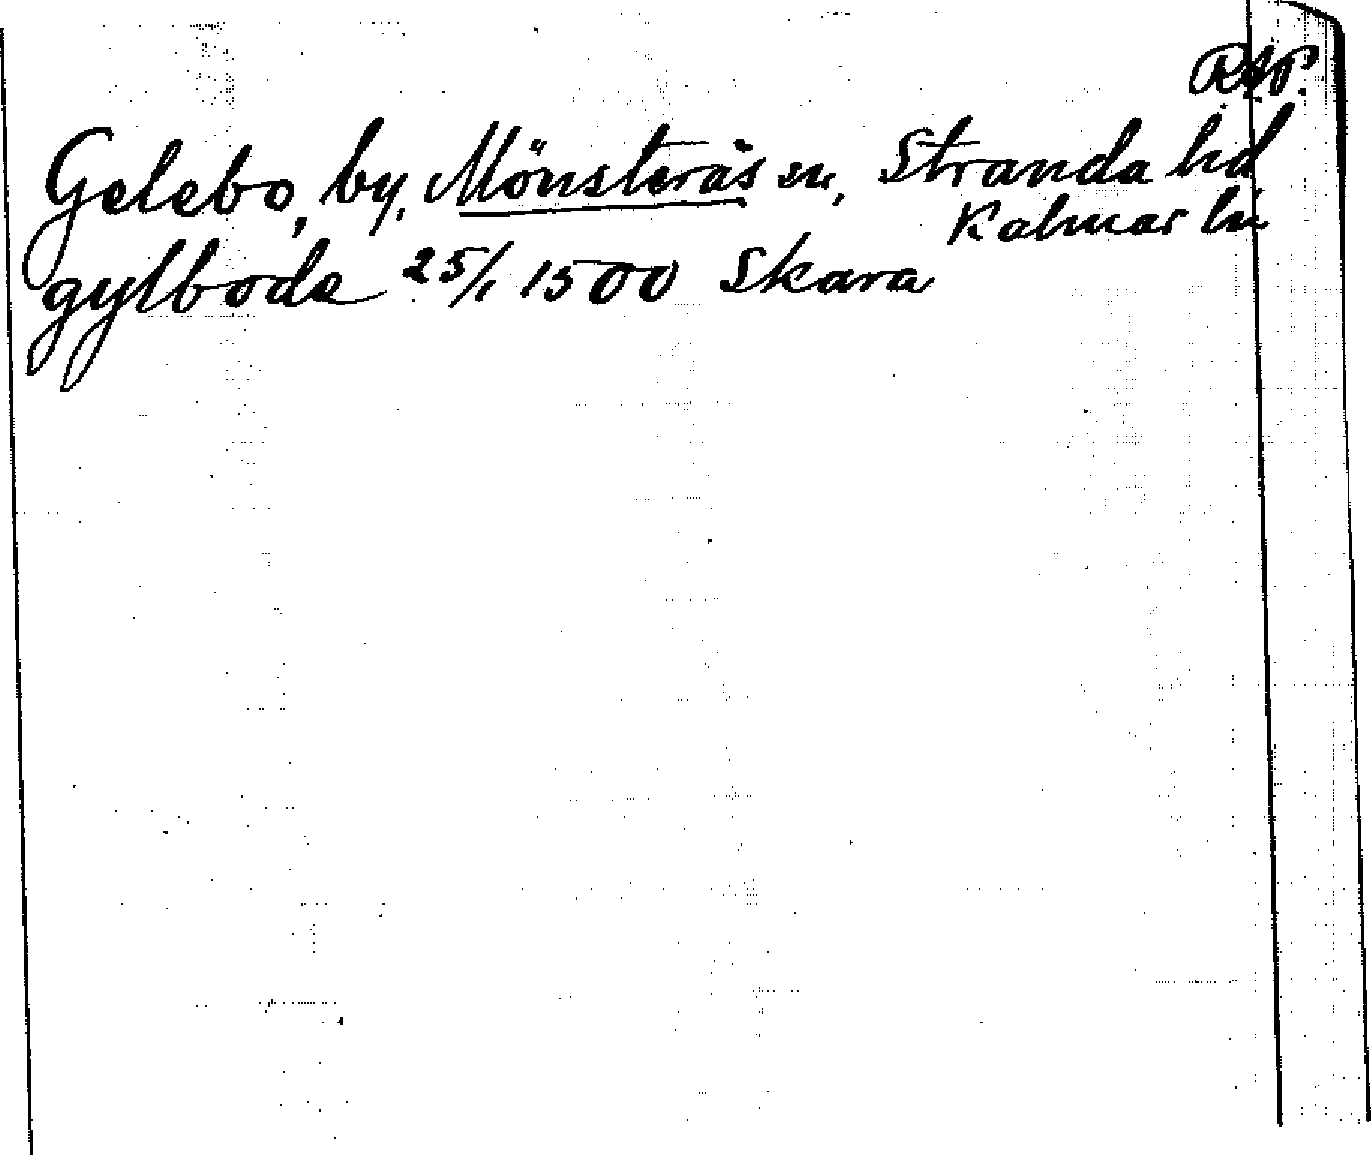 RAP.
Gelebo, by, Mönsterås sn, Stranda hd
Kalmar ln
gylboda 25/1 1500 Skara